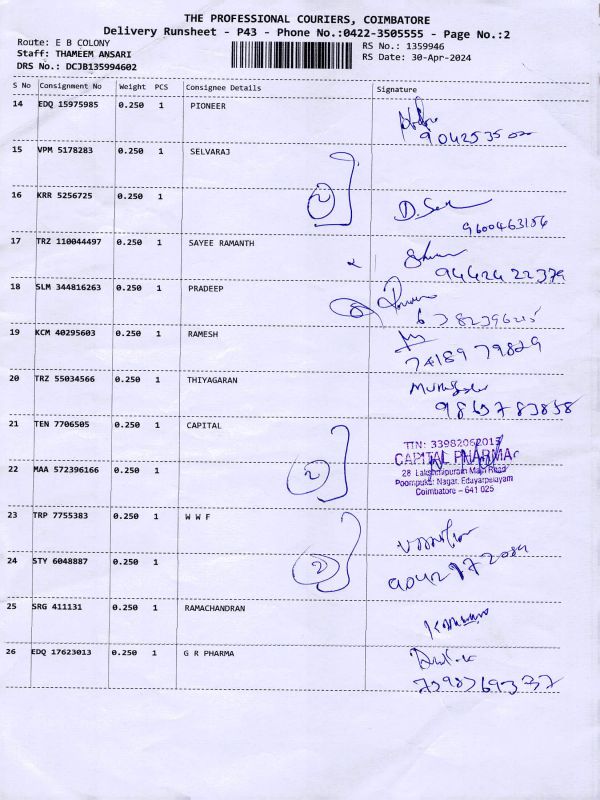 THE PROFESSIONAL COURIERS, COIMBATORE
Delivery Runsheet - P43 - Phone No.:0422-3505555 - Page No.:2
Route: E B COLONY
Staff: THAMEEM ANSARI
DRS No.: DCJB135994602
RS No.: 1359946
RS Date: 30-Apr-2024
S No Consignment No Weight PCS Consignee Details Signature
14 EDQ 15975985 0.250 1 PIONEER
15 VPM 5178283 0.250 1 SELVARAJ
2
16 KRR 5256725 0.250 1
D. 
9600463156
17 TRZ 110044497 0.250 1 SAYEE RAMANTH
9442422379
18 SLM 344816263 0.250 1 PRADEEP
19 KCM 40295603 0.250 1 RAMESH
7418979829
20 TRZ 55034566 0.250 1 THIYAGARAN
21 TEN 7706505 0.250 1 CAPITAL
TIN: 33982062015
CAPITAL PHARMA
28 Lakshmipuram Main Road
Poompukar Nagar, Edayarpalayam
Coimbatore - 641 025
2
22 MAA 572396166 0.250 1
23 TRP 7755383 0.250 1 W W F
2
24 STY 6048887 0.250 1
25 SRG 411131 0.250 1 RAMACHANDRAN
26 EDQ 17623013 0.250 1 G R PHARMA